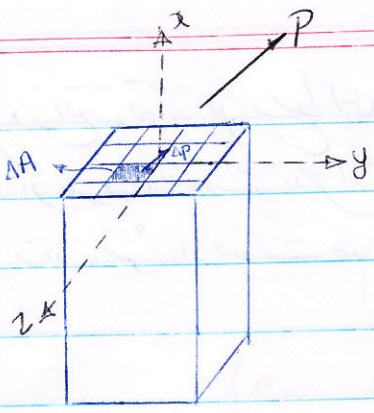 x
P
ΔA
ΔP
y
z